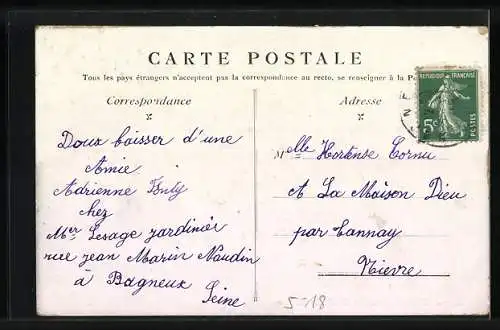 CARTE POSTALE
Tous les pays étrangers n'acceptent pas la correspondance au recto, se renseigner à la
Correspondance
Adresse
REPUBLIQUE FRANÇAISE
5c
POSTES
Doux baisser d'une
Amie
Adrienne
chez
Mer Lesage jardinier
rue jean Marin Naudin
à Bagneux
Seine
Melle Hortense Cornu
A La Maison Dieu
par Tannay
Nievre
5-18